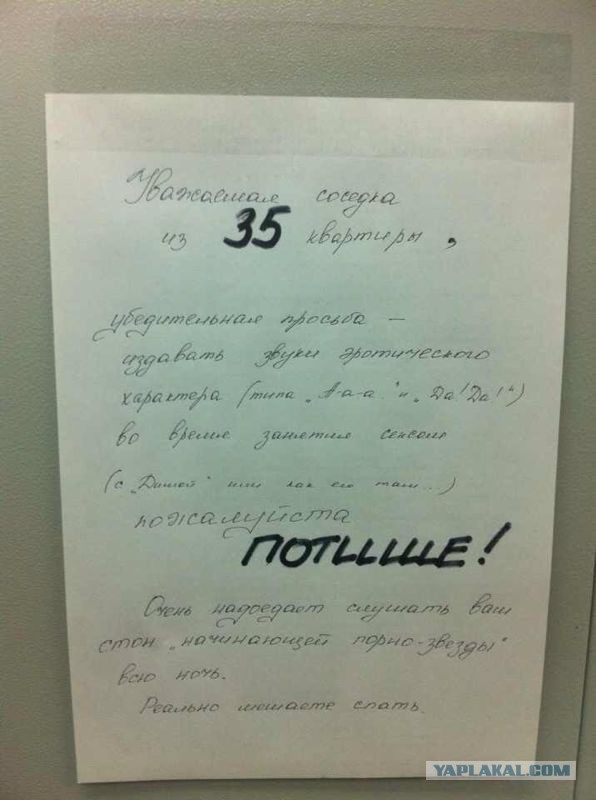 Уважаемая соседка
из 35 квартиры,
убедительная просьба –
издавать звуки эротического
характера (типа „А-а-а" и „Да! Да!")
во время занятия сексом
(с „Димой" или как его там...)
пожалуйста
ПОТИШЕ!
Очень надоедает слушать ваш
стон „начинающей порно-звезды"
всю ночь.
Реально мешаете спать.
YAPLAKAL.COM